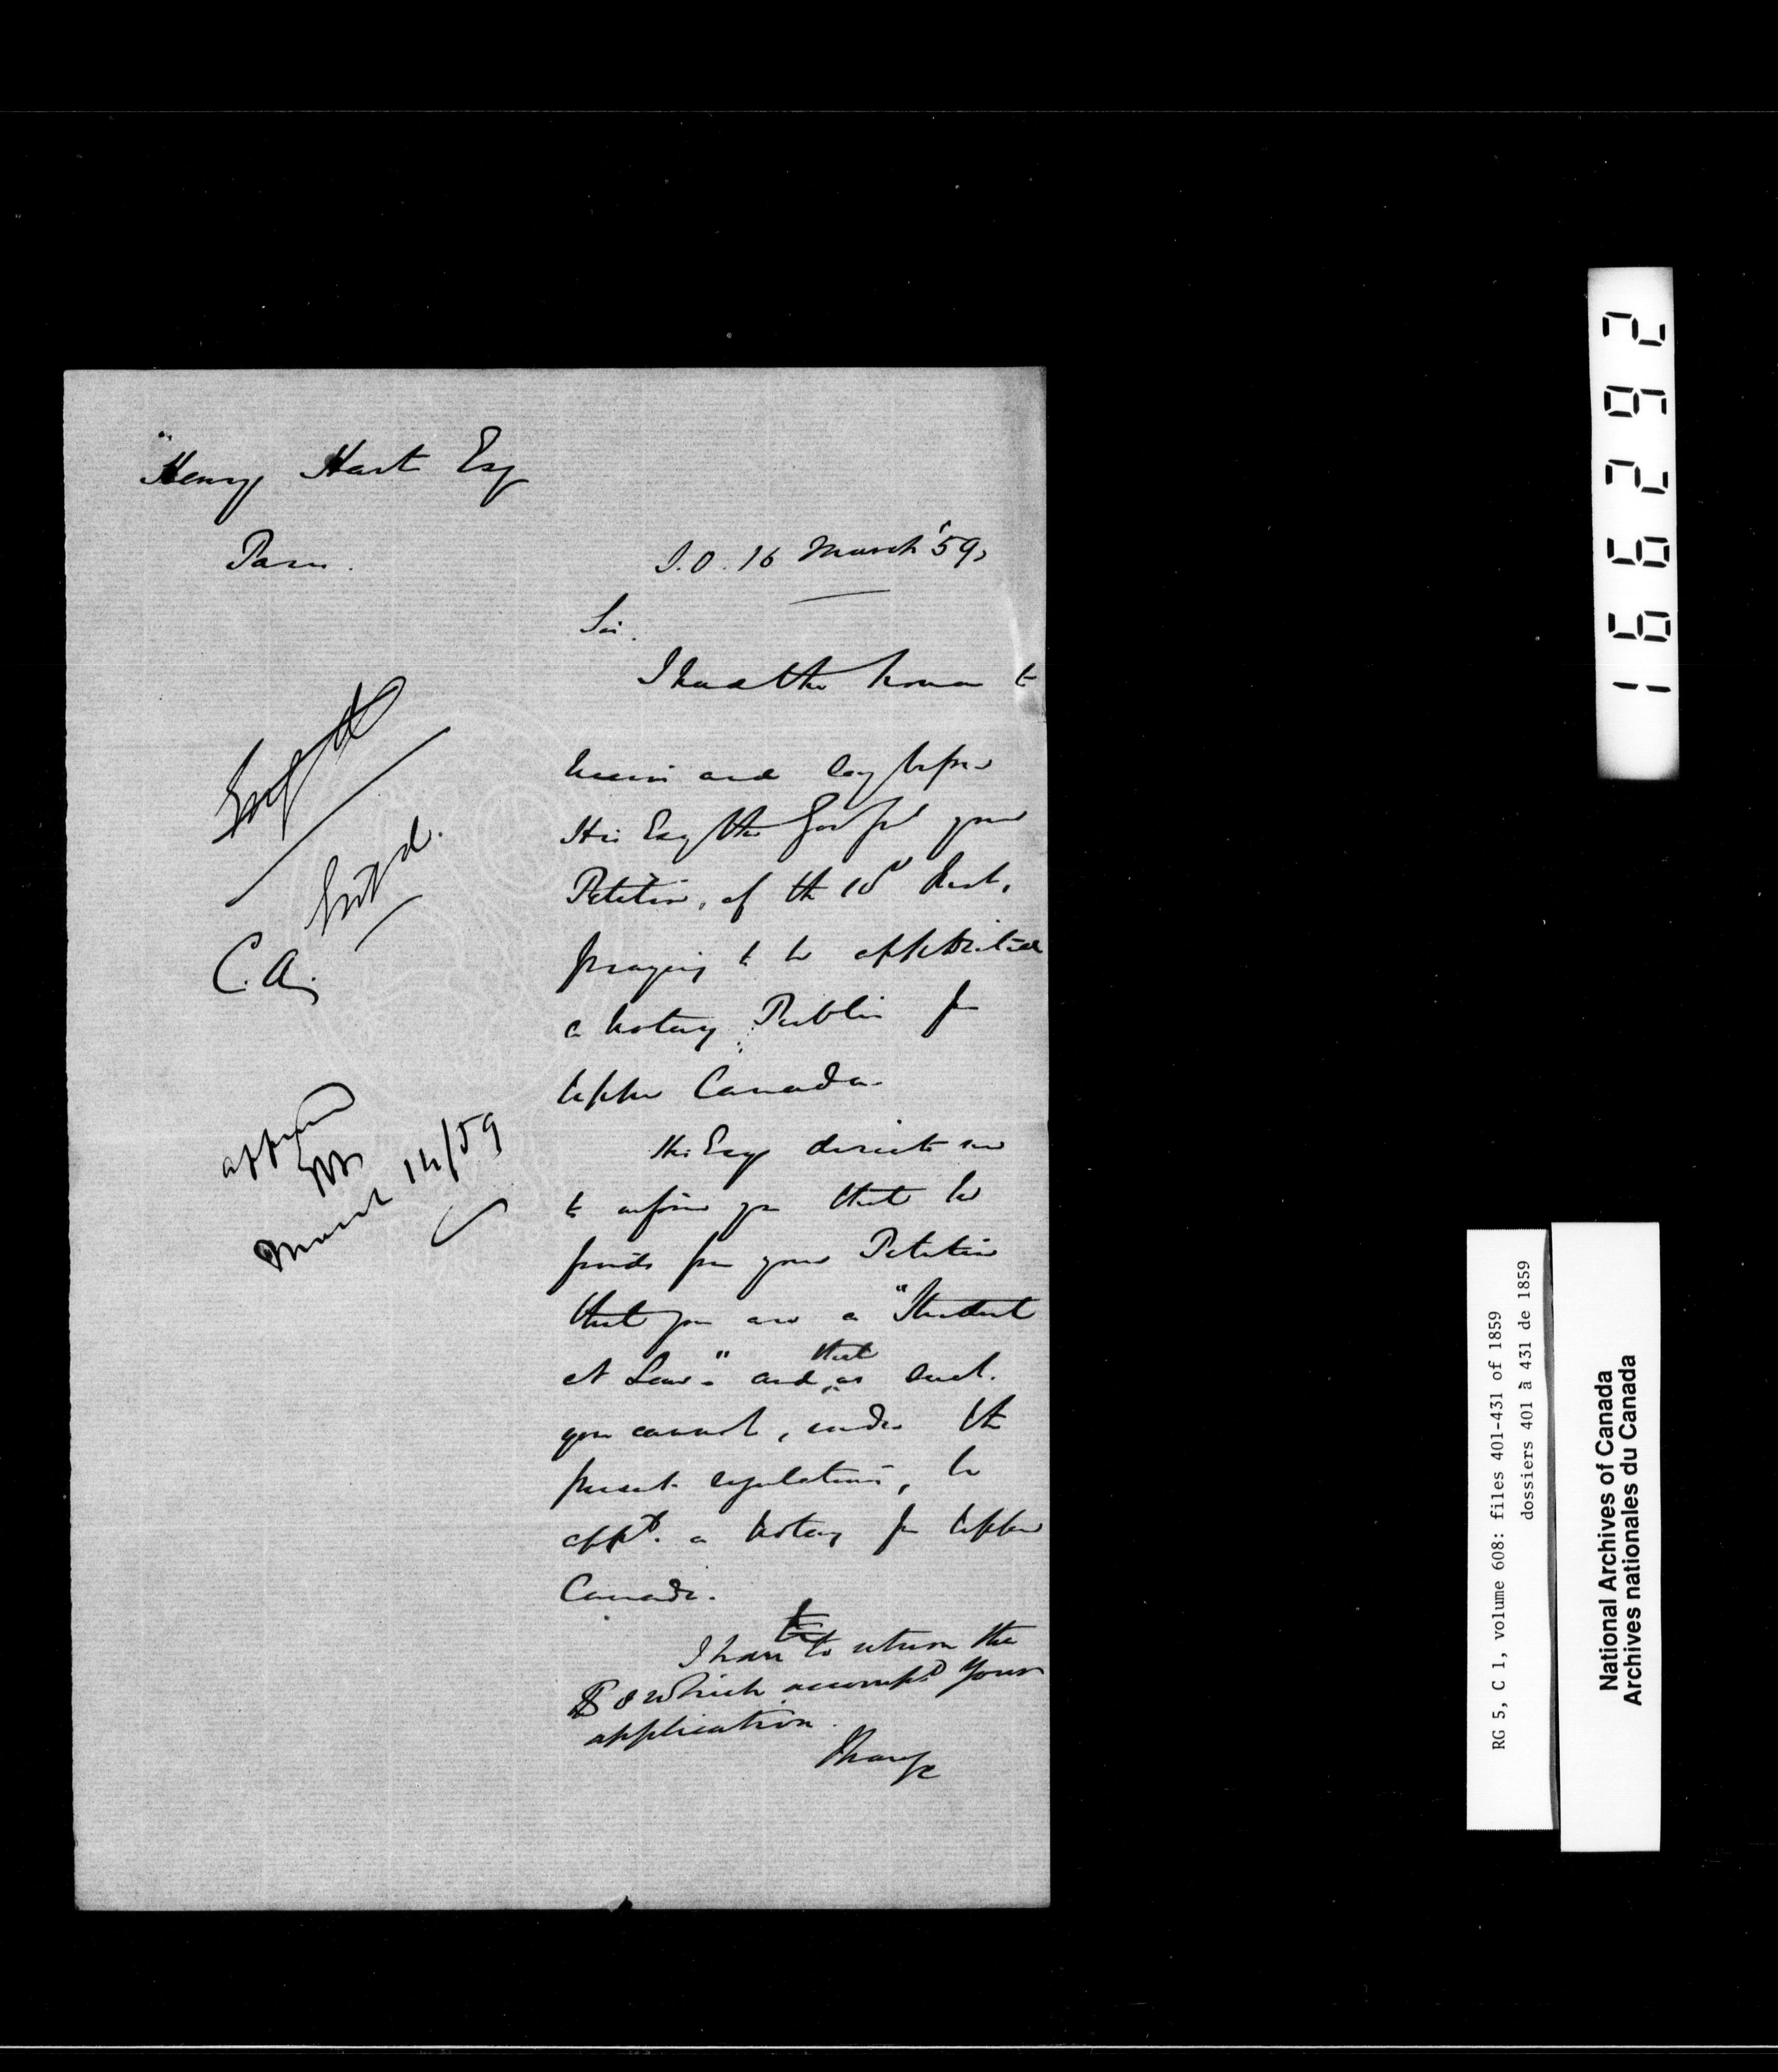 Henry Hart Esq
Paris.
S.O. 16 March '59,
Sir.
I had the honor to
receive and lay before
His Excy the Gov Genl your
Petition, of the 10 Inst,
praying to be appointed
a Notary Public for
Upper Canada.
His Excy directs me
to inform you that he
finds from your Petition
that you are a "Student
at Law" and that as such
you cannot, under the
present regulations, be
appd. a Notary for Upper
Canada.
I have to return the
$8 which accompd your
application.
I have &c
C.A.
approved
March 14/59
166292
RG 5, C 1, volume 608: files 401-431 of 1859
dossiers 401 à 431 de 1859
National Archives of Canada
Archives nationales du Canada